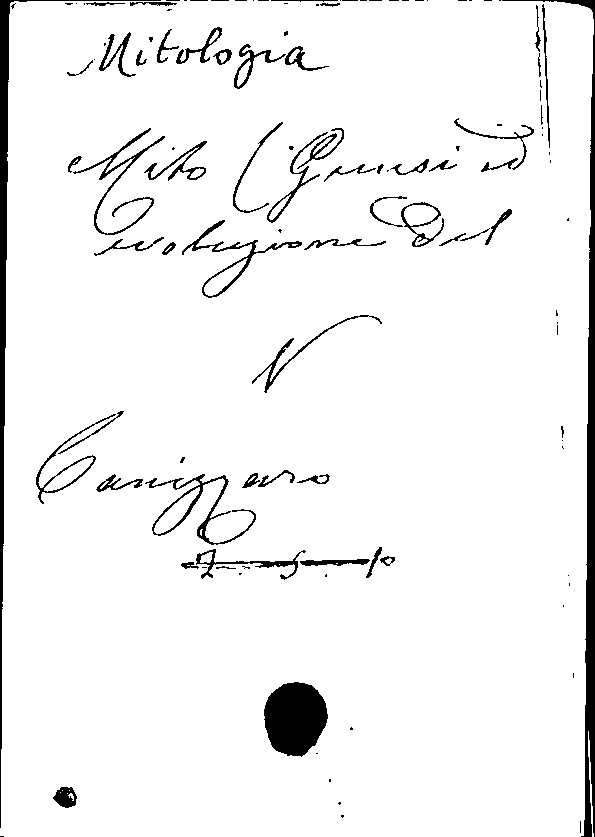 Mitologia
Mito (Genesi ed
evoluzione del
V
Canizzaro
7 5 10